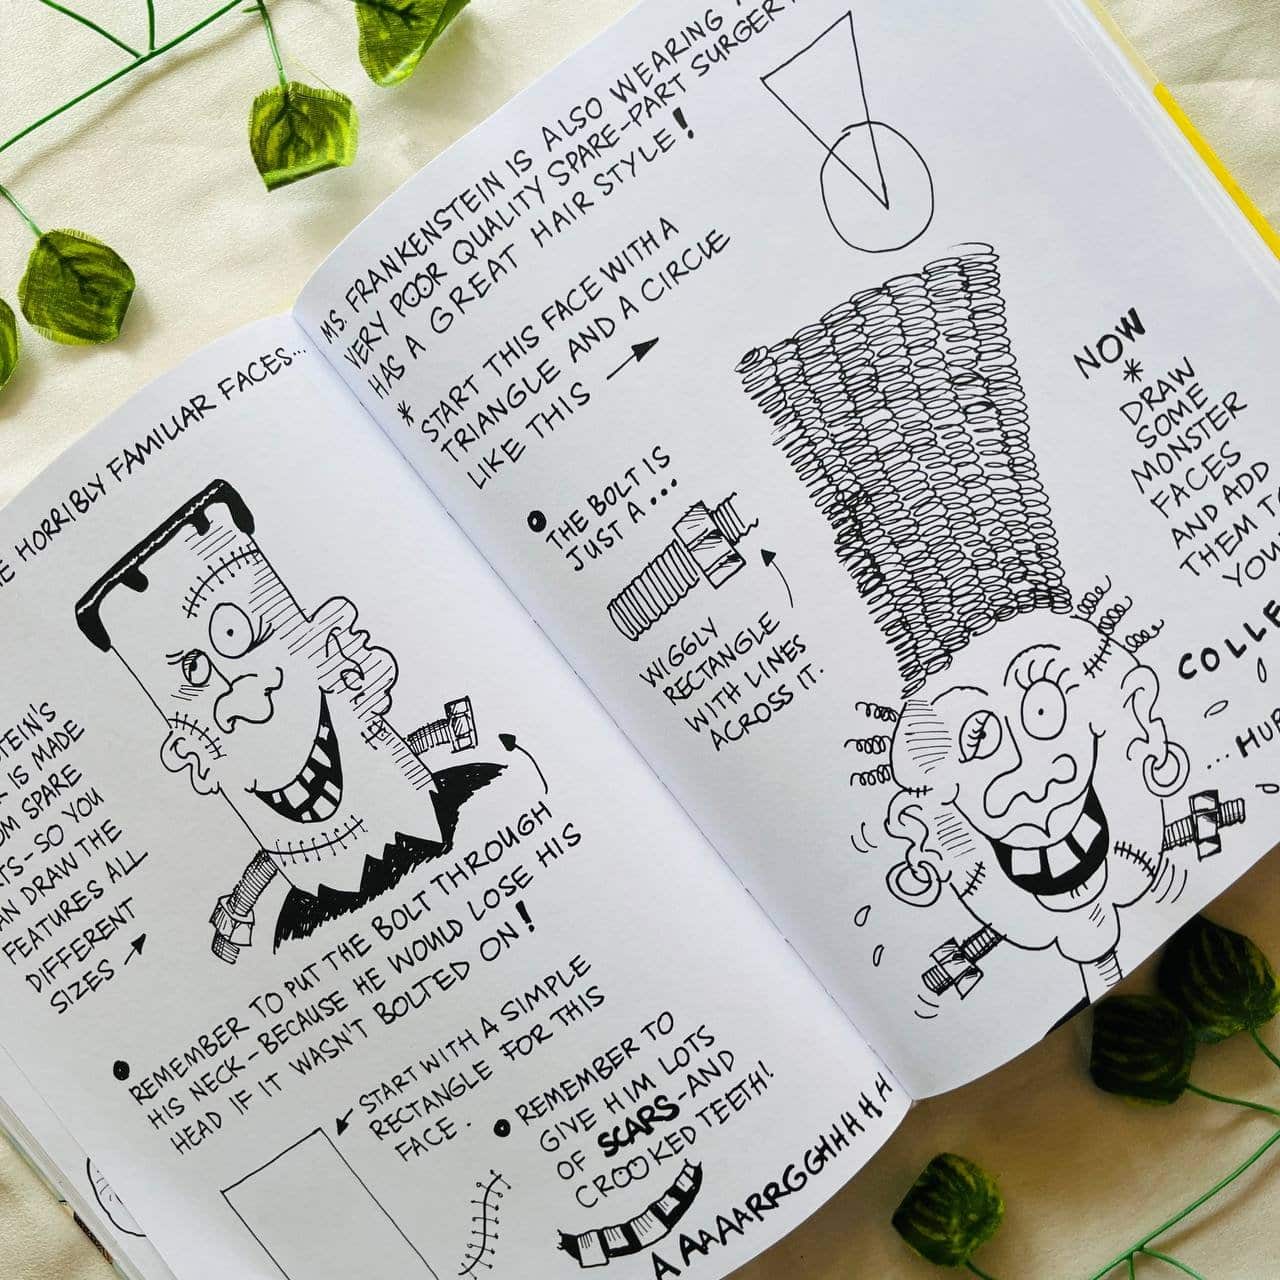 HORRIBLY FAMILIAR FACES...
IS MADE
SPARE
SO YOU
DRAW THE
FEATURES ALL
DIFFERENT
SIZES
REMEMBER TO PUT THE BOLT THROUGH
HIS NECK - BECAUSE HE WOULD LOSE HIS
HEAD IF IT WASN'T BOLTED ON!
START WITH A SIMPLE
RECTANGLE FOR THIS
FACE.
REMEMBER TO
GIVE HIM LOTS
OF SCARS - AND
CROOKED TEETH!
AAAAARRGGHHHHH
MS. FRANKENSTEIN IS ALSO WEARING
VERY POOR QUALITY SPARE-PART SURGERY
HAS A GREAT HAIR STYLE!
* START THIS FACE WITH A
TRIANGLE AND A CIRCLE
LIKE THIS
THE BOLT IS
JUST A...
WIGGLY
RECTANGLE
WITH LINES
ACROSS IT.
NOW
*
DRAW
SOME
MONSTER
FACES
AND ADD
THEM TO